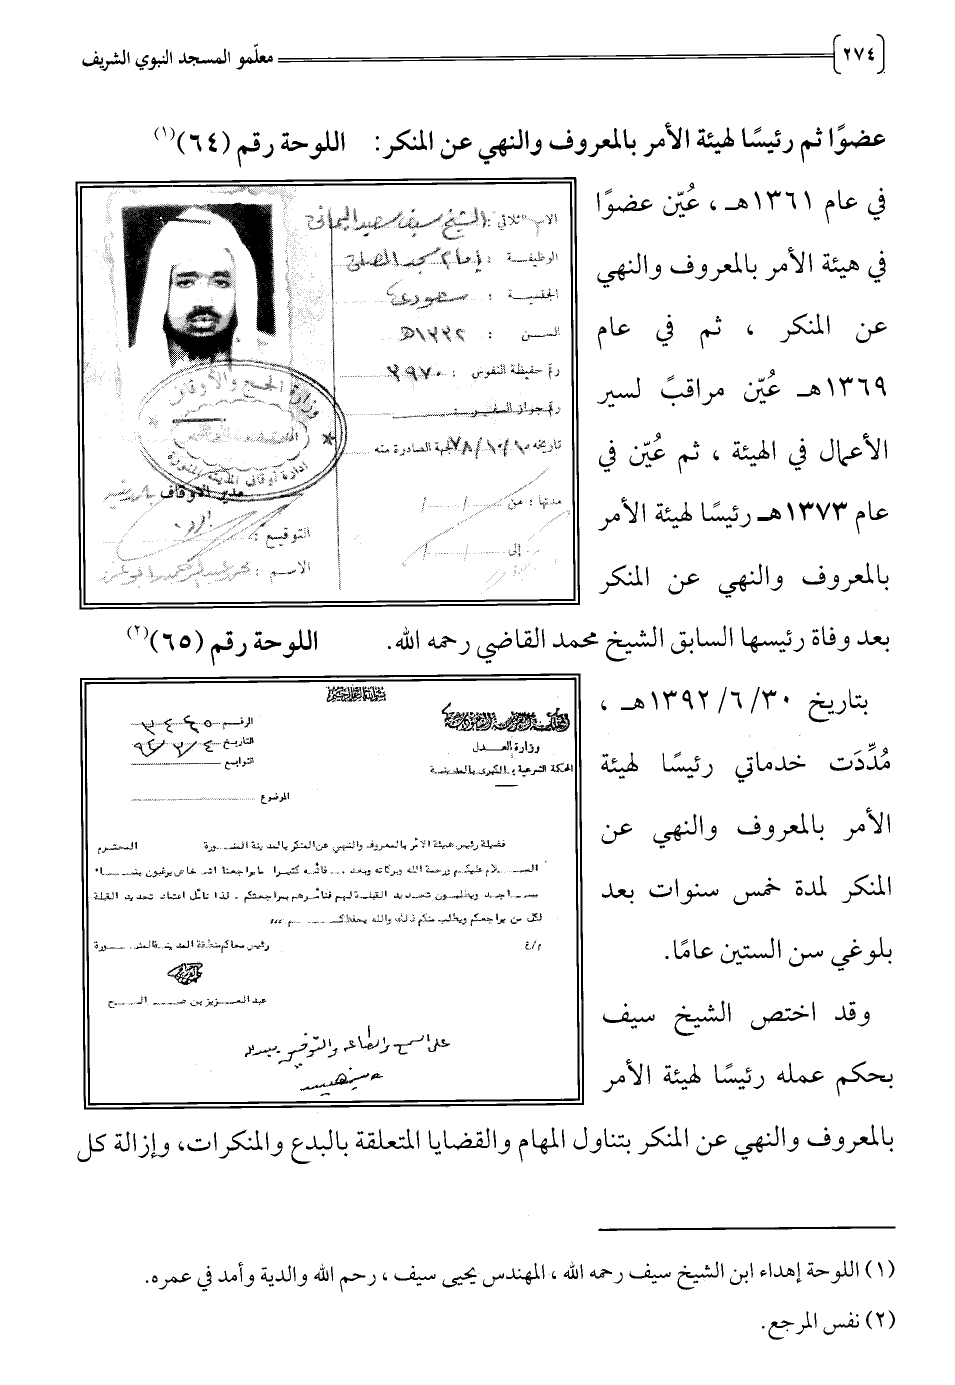 (٢٧٤) معلّمو المسجد النبوي الشريف
عضوًا ثم رئيسًا لهيئة الأمر بالمعروف والنهي عن المنكر:
في عام ١٣٦١هـ ، عُيّن عضوًا
في هيئة الأمر بالمعروف والنهي
عن المنكر ، ثم في عام
١٣٦٩هـ عُيّن مراقبً لسير
الأعمال في الهيئة ، ثم عُيّن في
عام ١٣٧٣هـ رئيسًا لهيئة الأمر
بالمعروف والنهي عن المنكر
بعد وفاة رئيسها السابق الشيخ محمد القاضي رحمه الله.
بتاريخ ١٣٩٢/٦/٣٠هـ ،
مُدِّدَت خدماتي رئيسًا لهيئة
الأمر بالمعروف والنهي عن
المنكر لمدة خمس سنوات بعد
بلوغي سن الستين عامًا.
وقد اختص الشيخ سيف
بحكم عمله رئيسًا لهيئة الأمر
بالمعروف والنهي عن المنكر بتناول المهام والقضايا المتعلقة بالبدع والمنكرات، وإزالة كل
اللوحة رقم (٦٤)(١)
الشيخ سيف سعيد اليماني
الوظيفة : إمام مسجد المصلى
الجنسية : سعودي
السن : ١٣٣٢هـ
رقم حفيظة النفوس : ٣٩٧٠
رقم جواز السفر
تاريخه ٧٨/١٠/١٠ الجهة الصادرة منه
مدتها : من / /
إلى / /
وزارة الحج والأوقاف
إدارة أوقاف المدينة المنورة
مدير الأوقاف
التوقيع :
الاسم :
اللوحة رقم (٦٥)(٢)
المملكة العربية السعودية
وزارة العدل
المحكة الشرعية الكبرى بالمدينة
الرقم
التاريخ ٩٢/٣/٤
التوابع
الموضوع
فضيلة رئيس هيئة الأمر بالمعروف والنهي عن المنكر بالمدينة المنورة المحترم
السلام عليكم ورحمة الله وبركاته وبعد ... فانه كثيرا ما يراجعنا اشخاص يرغبون بناء
مساجد ويطلبون تحديد القبلة لهم فنأمرهم بمراجعتكم . لذا نأمل اعتماد تحديد القبلة
لكل من يراجعكم ويطلب منكم ذلك والله يحفظكم ,,,
م/ع رئيس محاكم منطقة المدينة المنورة
عبد العزيز بن صالح
على السمع والطاعة والتوفيق بيد الله
(١) اللوحة إهداء ابن الشيخ سيف رحمه الله ، المهندس يحيى سيف ، رحم الله والدية وأمد في عمره.
(٢) نفس المرجع.